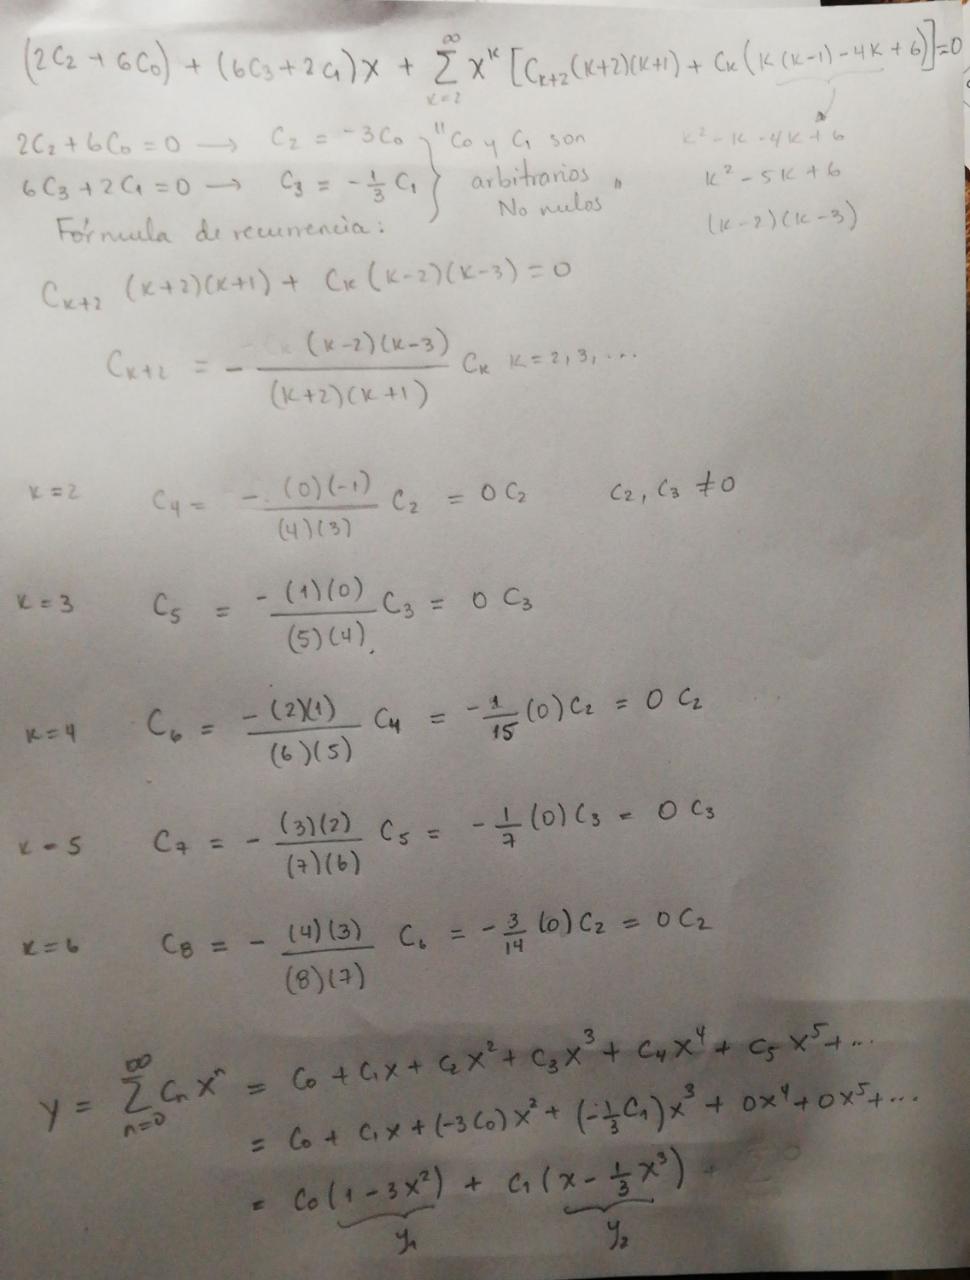 (2C₂ + 6C₀) + (6C₃ + 2C₁)x + ∑_{k=2}^{∞} x^k [C_{k+2}(k+2)(k+1) + C_k(k(k-1) - 4k + 6)] = 0
2C₂ + 6C₀ = 0 → C₂ = -3C₀ } "C₀ y C₁ son k² - k - 4k + 6
6C₃ + 2C₁ = 0 → C₃ = -1/3 C₁ } arbitrarios " k² - 5k + 6
No nulos (k-2)(k-3)
Fórmula de recurrencia:
C_{k+2} (k+2)(k+1) + C_k (k-2)(k-3) = 0
C_{k+2} = - (k-2)(k-3) / (k+2)(k+1) C_k k = 2, 3, ...
k = 2 C₄ = - (0)(-1) / (4)(3) C₂ = 0 C₂ C₂, C₃ ≠ 0
k = 3 C₅ = - (1)(0) / (5)(4) C₃ = 0 C₃
k = 4 C₆ = - (2)(1) / (6)(5) C₄ = - 1/15 (0) C₂ = 0 C₂
k = 5 C₇ = - (3)(2) / (7)(6) C₅ = - 1/7 (0) C₃ = 0 C₃
k = 6 C₈ = - (4)(3) / (8)(7) C₆ = - 3/14 (0) C₂ = 0 C₂
y = ∑_{n=0}^{∞} C_n x^n = C₀ + C₁x + C₂x² + C₃x³ + C₄x⁴ + C₅x⁵ + ...
= C₀ + C₁x + (-3C₀)x² + (-1/3 C₁)x³ + 0x⁴ + 0x⁵ + ...
= C₀(1 - 3x²) + C₁(x - 1/3 x³)
y₁ y₂